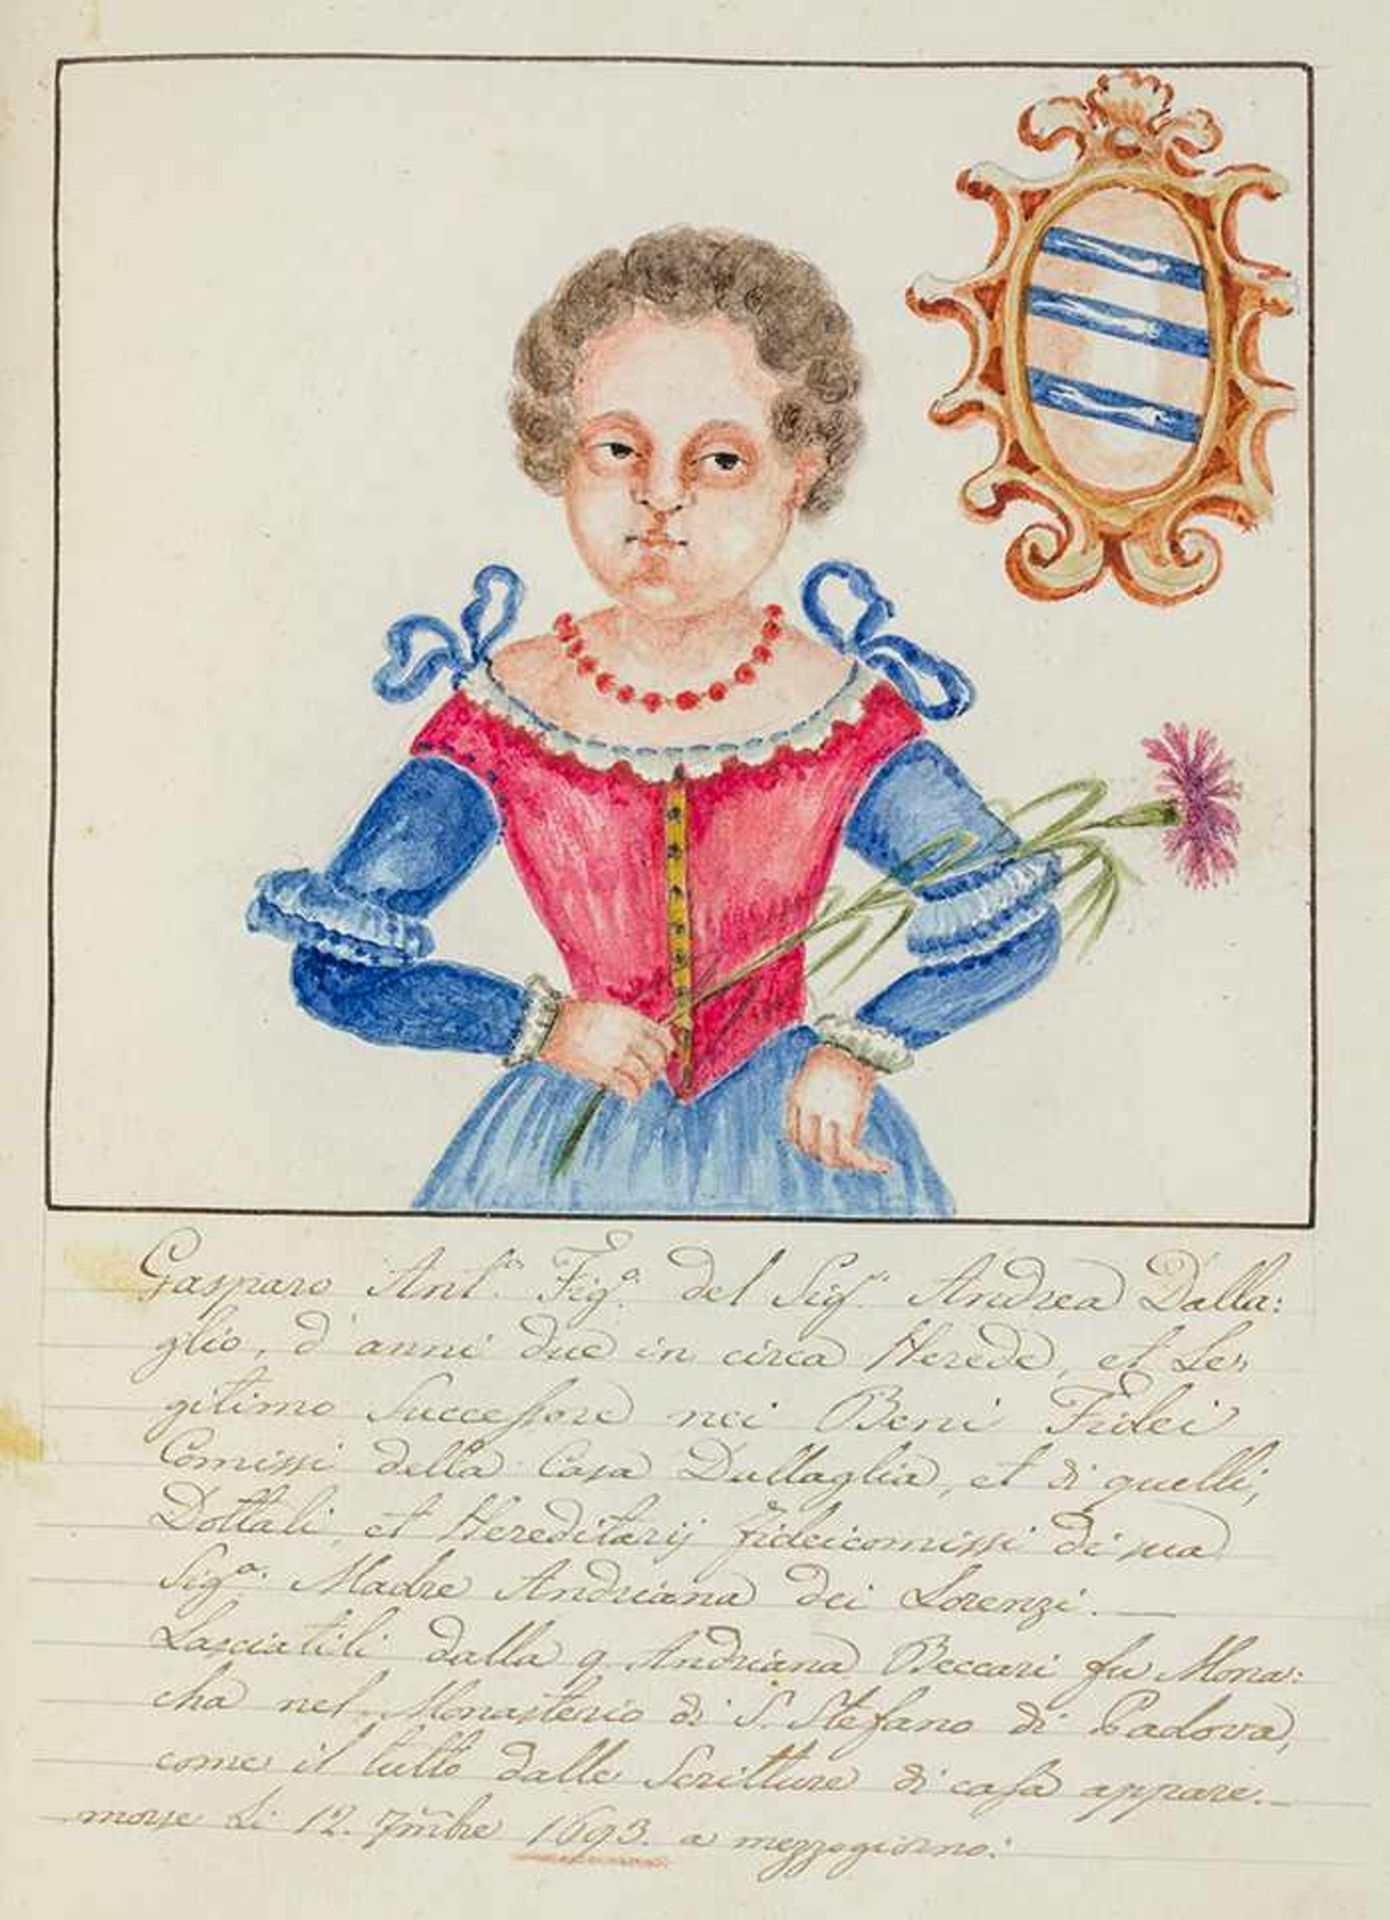 Gasparo Ant.º Fig.º del Sig.r Andrea Dalla:
glio, d'anni due in circa Herede, et Le,,
gitimo Successore nei Beni Fidei
Comissi della Casa Dallaglia, et di quelli,
Dottali, et Hereditarij fideicomissi di sua
Sig.ª Madre Andriana dei Lorenzi.
Lasciatili dalla q. Andriana Beccari fu Mona:
cha nel Monasterio di S. Stefano di Padova,
come il tutto dalle Scritture di casa appare.
morse li 12. 7mbre 1693. a mezzogiorno: